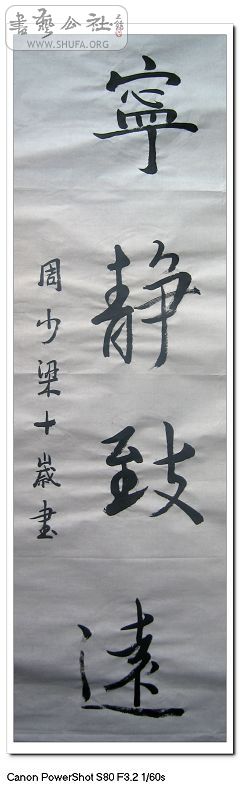 書藝公社
WWW.SHUFA.ORG
寧靜致遠
周少梁十歲書
Canon PowerShot S80 F3.2 1/60s